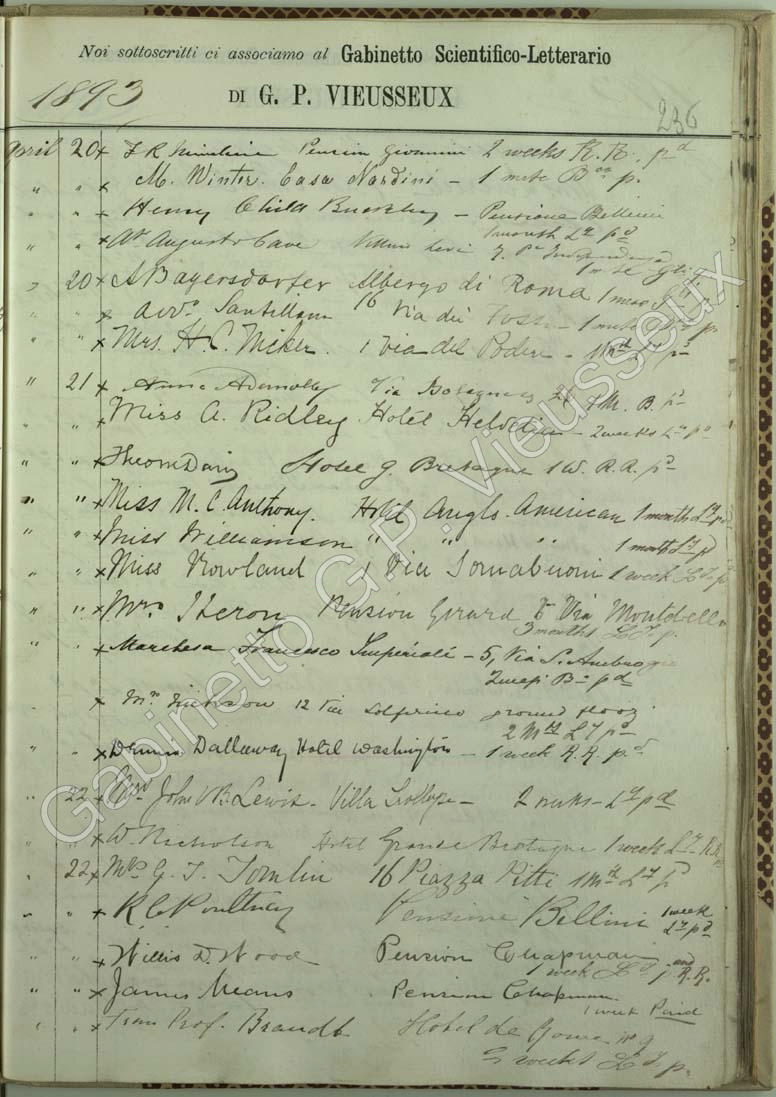 Noi sottoscritti ci associamo al Gabinetto Scientifico-Letterario
1893 DI G. P. VIEUSSEUX
236
April 20 x F R Pension Giovannini 2 weeks R. R. pd
" " x M. Winter. Casa Nardini - 1 mese p.
" " x Henry Child - Pensione Bellini
1 month Ly pd
" " x Augusto Cave
1 mese
" 20 x A Bayersdorfer Albergo di Roma 1 mese p
" " x Avvo Santillana 16 Via dei Fossi - 1 mese p.
" " x Mrs. H. C. 1 Via del Podere - 1 Mth Ly p
" 21 x Anna Via Bolognese 1 M. B. pd
" " x Miss A. Ridley Hotel Helvetia - 2 weeks Ly pd
" " x Hotel g. Bretagne 1 W. R. R. pd
" " x Miss M. C. Anthony. Hotel Anglo-American 1 month Ly pd
" " x Miss Williamson " " " 1 month Ly p
" " x Miss Rowland 1 Via Tornabuoni 1 week Ly p
" " x Mrs Heron Pension Girard 8 Via Montebello
3 months Ly p.
" " x Marchesa Francesco Imperiali - 5, Via S. Ambrogio
2 mesi B pd
x Mrs 12 Via Solferino ground floor
2 Mths Ly pd
" " x Dennis Dallaway Hotel Washington - 1 week R.R. pd
" 22 x Mrs John V B. Lewis - Villa Trollope - 2 weeks - Ly pd
" " x W. Nicholson Hotel Grande Bretagne 1 week Ly R.R.
" 22 x Mrs G. T. Tomlin 16 Piazza Pitti 1 Mth Ly p
" " x R C Poultney Pensione Bellini 1 week
Ly pd
" " x Willis D. Wood Pension Chapman
1 week Ly and R.R. p
" " x James Means Pension Chapman
1 week Paid
" " x Frau Prof. Brandt Hotel de Rome
weeks Ly p.
Gabinetto G.P. Vieusseux